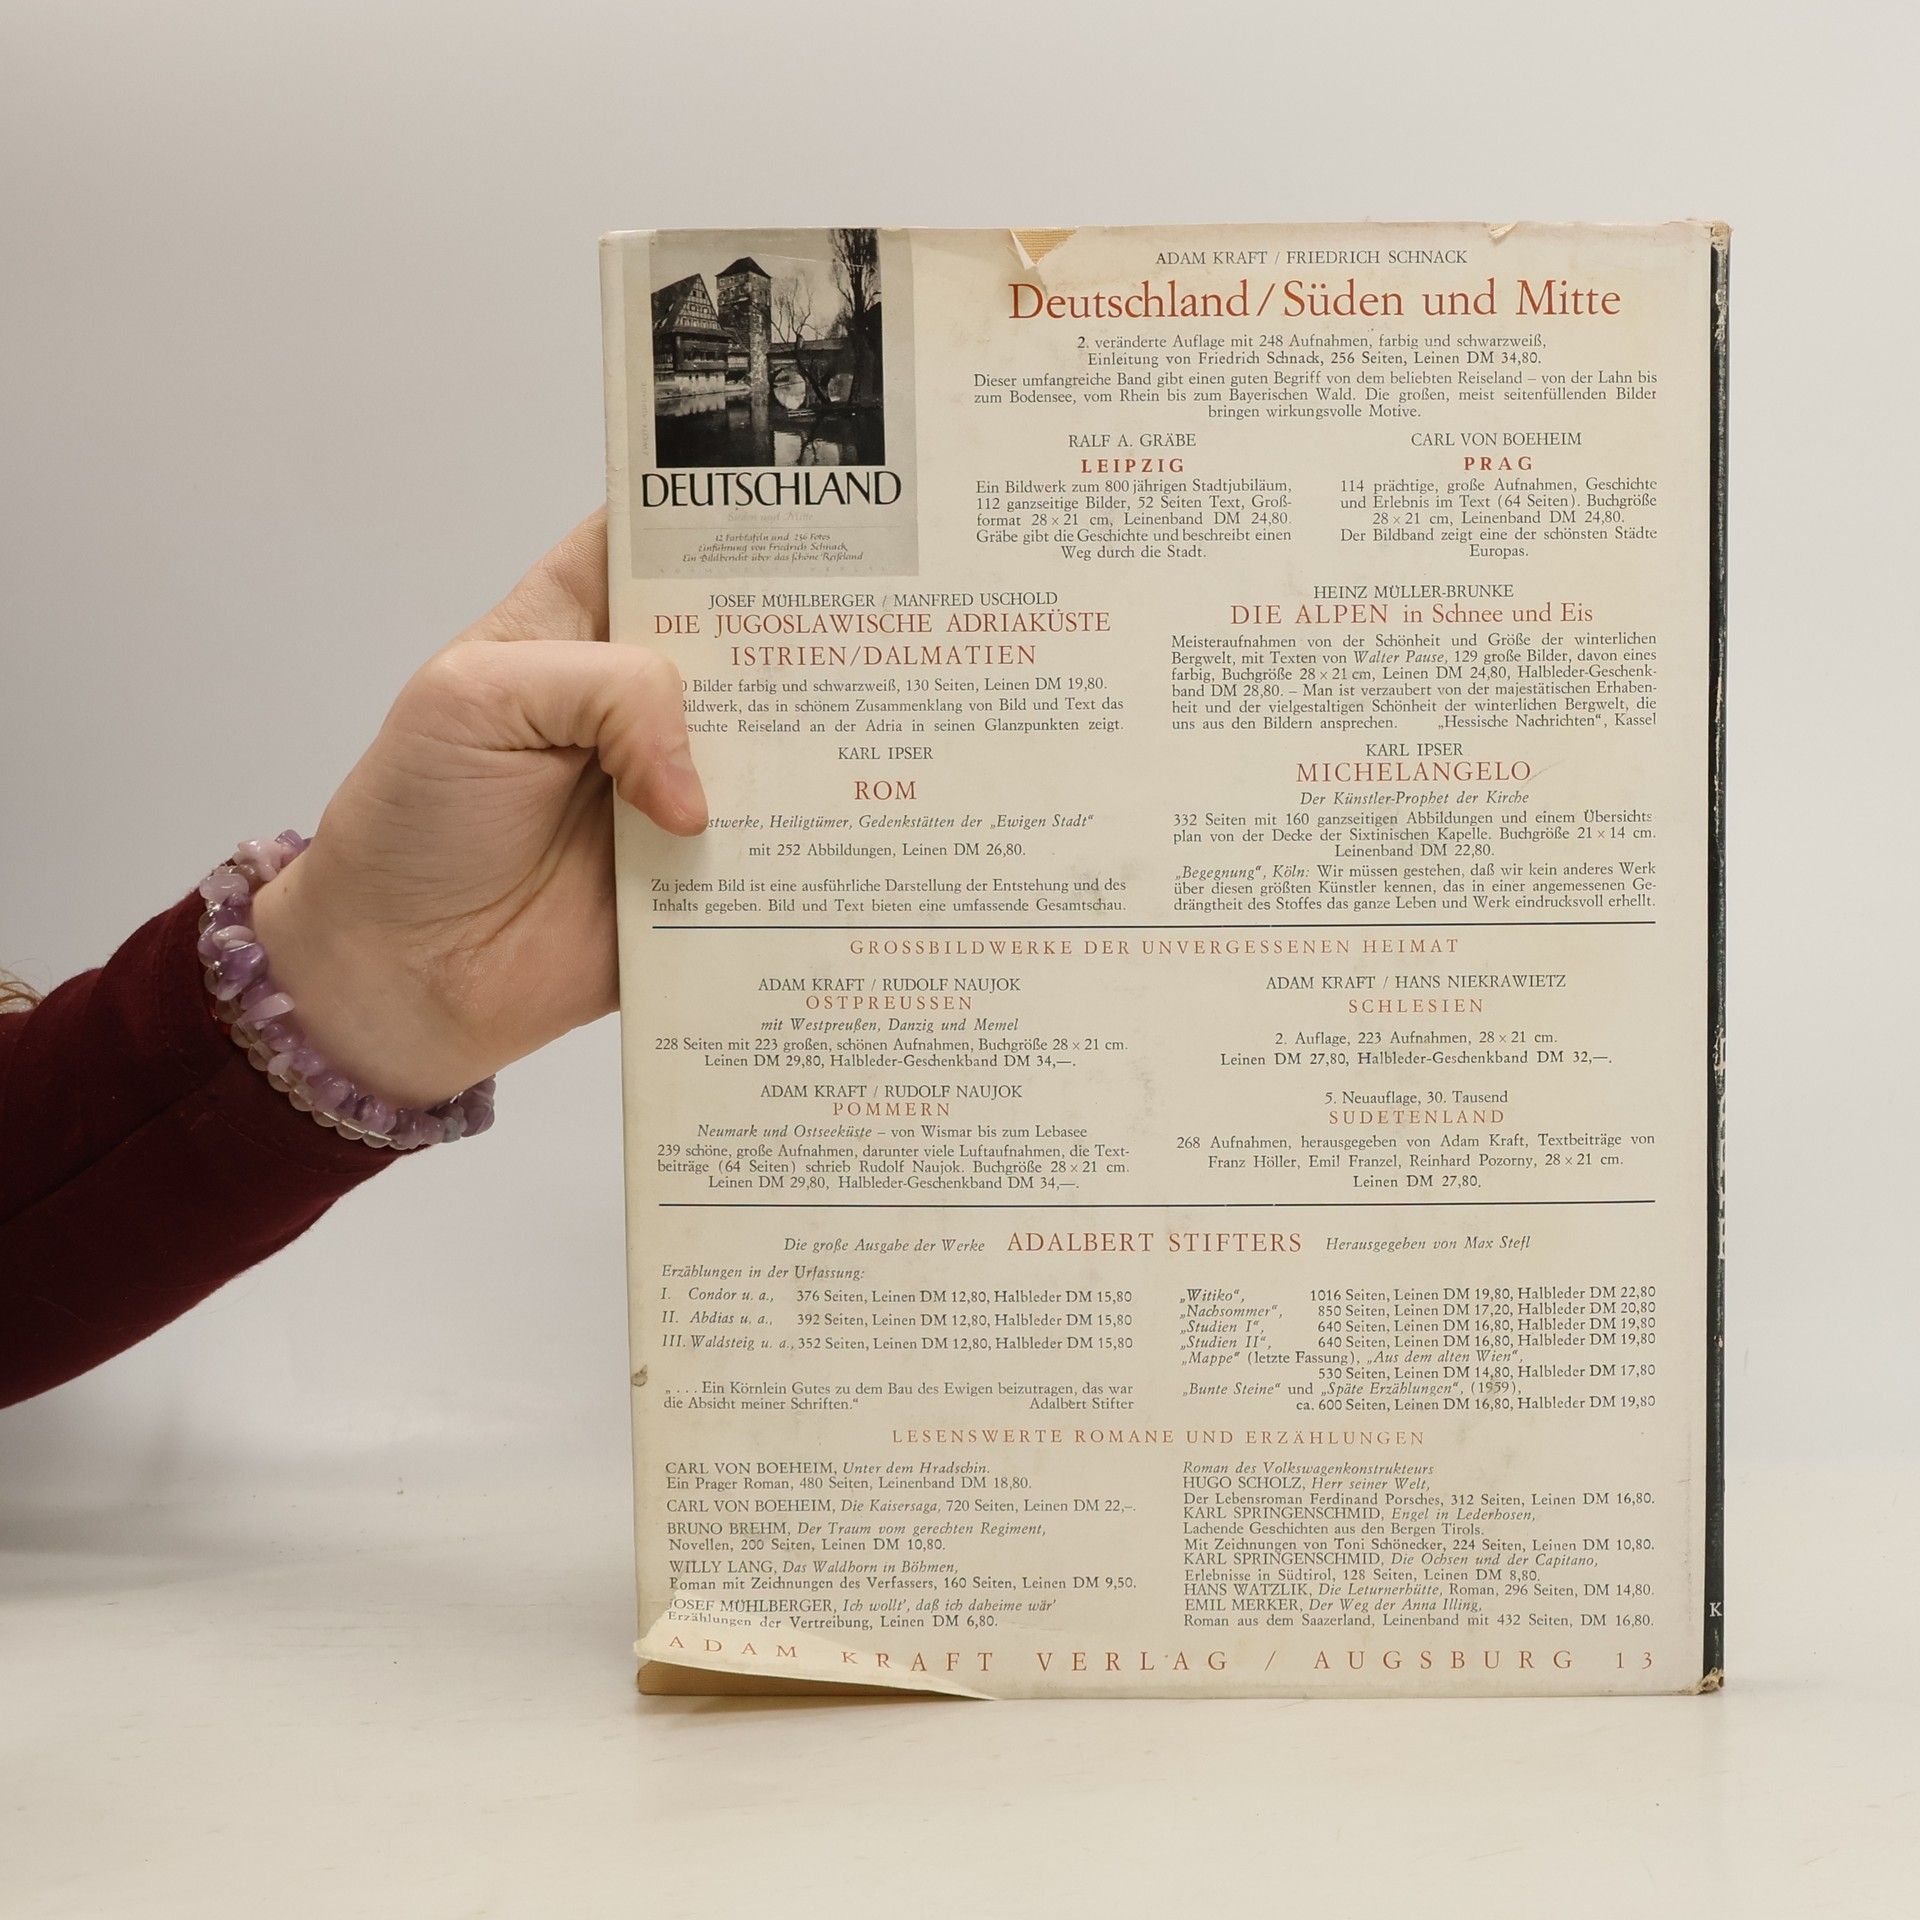 ADAM KRAFT / FRIEDRICH SCHNACK
Deutschland / Süden und Mitte
2. veränderte Auflage mit 248 Aufnahmen, farbig und schwarzweiß,
Einleitung von Friedrich Schnack, 256 Seiten, Leinen DM 34,80.
Dieser umfangreiche Band gibt einen guten Begriff von dem beliebten Reiseland – von der Lahn bis
zum Bodensee, vom Rhein bis zum Bayerischen Wald. Die großen, meist seitenfüllenden Bilder
bringen wirkungsvolle Motive.
DEUTSCHLAND
Süden und Mitte
12 Farbtafeln und 236 Fotos
Einführung von Friedrich Schnack
Ein Bildbericht über das schöne Reiseland
RALF A. GRÄBE
LEIPZIG
Ein Bildwerk zum 800 jährigen Stadtjubiläum,
112 ganzseitige Bilder, 52 Seiten Text, Groß-
format 28 × 21 cm, Leinenband DM 24,80.
Gräbe gibt die Geschichte und beschreibt einen
Weg durch die Stadt.
CARL VON BOEHEIM
PRAG
114 prächtige, große Aufnahmen, Geschichte
und Erlebnis im Text (64 Seiten). Buchgröße
28 × 21 cm, Leinenband DM 24,80.
Der Bildband zeigt eine der schönsten Städte
Europas.
JOSEF MÜHLBERGER / MANFRED USCHOLD
DIE JUGOSLAWISCHE ADRIAKÜSTE
ISTRIEN/DALMATIEN
0 Bilder farbig und schwarzweiß, 130 Seiten, Leinen DM 19,80.
Bildwerk, das in schönem Zusammenklang von Bild und Text das
suchte Reiseland an der Adria in seinen Glanzpunkten zeigt.
HEINZ MÜLLER-BRUNKE
DIE ALPEN in Schnee und Eis
Meisteraufnahmen von der Schönheit und Größe der winterlichen
Bergwelt, mit Texten von Walter Pause, 129 große Bilder, davon eines
farbig, Buchgröße 28 × 21 cm, Leinen DM 24,80, Halbleder-Geschenk-
band DM 28,80. – Man ist verzaubert von der majestätischen Erhaben-
heit und der vielgestaltigen Schönheit der winterlichen Bergwelt, die
uns aus den Bildern ansprechen. „Hessische Nachrichten“, Kassel
KARL IPSER
ROM
stwerke, Heiligtümer, Gedenkstätten der „Ewigen Stadt“
mit 252 Abbildungen, Leinen DM 26,80.
Zu jedem Bild ist eine ausführliche Darstellung der Entstehung und des
Inhalts gegeben. Bild und Text bieten eine umfassende Gesamtschau.
KARL IPSER
MICHELANGELO
Der Künstler-Prophet der Kirche
332 Seiten mit 160 ganzseitigen Abbildungen und einem Übersichts
plan von der Decke der Sixtinischen Kapelle. Buchgröße 21 × 14 cm.
Leinenband DM 22,80.
„Begegnung“, Köln: Wir müssen gestehen, daß wir kein anderes Werk
über diesen größten Künstler kennen, das in einer angemessenen Ge-
drängtheit des Stoffes das ganze Leben und Werk eindrucksvoll erhellt.
GROSSBILDWERKE DER UNVERGESSENEN HEIMAT
ADAM KRAFT / RUDOLF NAUJOK
OSTPREUSSEN
mit Westpreußen, Danzig und Memel
228 Seiten mit 223 großen, schönen Aufnahmen, Buchgröße 28 × 21 cm.
Leinen DM 29,80, Halbleder-Geschenkband DM 34,—.
ADAM KRAFT / HANS NIEKRAWIETZ
SCHLESIEN
2. Auflage, 223 Aufnahmen, 28 × 21 cm.
Leinen DM 27,80, Halbleder-Geschenkband DM 32,—.
ADAM KRAFT / RUDOLF NAUJOK
POMMERN
Neumark und Ostseeküste – von Wismar bis zum Lebasee
239 schöne, große Aufnahmen, darunter viele Luftaufnahmen, die Text-
beiträge (64 Seiten) schrieb Rudolf Naujok. Buchgröße 28 × 21 cm.
Leinen DM 29,80, Halbleder-Geschenkband DM 34,—.
5. Neuauflage, 30. Tausend
SUDETENLAND
268 Aufnahmen, herausgegeben von Adam Kraft, Textbeiträge von
Franz Höller, Emil Franzel, Reinhard Pozorny, 28 × 21 cm.
Leinen DM 27,80.
Die große Ausgabe der Werke ADALBERT STIFTERS Herausgegeben von Max Stefl
Erzählungen in der Urfassung:
I. Condor u. a., 376 Seiten, Leinen DM 12,80, Halbleder DM 15,80
II. Abdias u. a., 392 Seiten, Leinen DM 12,80, Halbleder DM 15,80
III. Waldsteig u. a., 352 Seiten, Leinen DM 12,80, Halbleder DM 15,80
„ . . . Ein Körnlein Gutes zu dem Bau des Ewigen beizutragen, das war
die Absicht meiner Schriften.“ Adalbert Stifter
„Witiko“, 1016 Seiten, Leinen DM 19,80, Halbleder DM 22,80
„Nachsommer“, 850 Seiten, Leinen DM 17,20, Halbleder DM 20,80
„Studien I“, 640 Seiten, Leinen DM 16,80, Halbleder DM 19,80
„Studien II“, 640 Seiten, Leinen DM 16,80, Halbleder DM 19,80
„Mappe“ (letzte Fassung), „Aus dem alten Wien“,
530 Seiten, Leinen DM 14,80, Halbleder DM 17,80
„Bunte Steine“ und „Späte Erzählungen“, (1959),
ca. 600 Seiten, Leinen DM 16,80, Halbleder DM 19,80
LESENSWERTE ROMANE UND ERZÄHLUNGEN
CARL VON BOEHEIM, Unter dem Hradschin.
Ein Prager Roman, 480 Seiten, Leinenband DM 18,80.
CARL VON BOEHEIM, Die Kaisersaga, 720 Seiten, Leinen DM 22,–.
BRUNO BREHM, Der Traum vom gerechten Regiment,
Novellen, 200 Seiten, Leinen DM 10,80.
WILLY LANG, Das Waldhorn in Böhmen,
Roman mit Zeichnungen des Verfassers, 160 Seiten, Leinen DM 9,50.
JOSEF MÜHLBERGER, Ich wollt', daß ich daheime wär'
Erzählungen der Vertreibung, Leinen DM 6,80.
Roman des Volkswagenkonstrukteurs
HUGO SCHOLZ, Herr seiner Welt,
Der Lebensroman Ferdinand Porsches, 312 Seiten, Leinen DM 16,80.
KARL SPRINGENSCHMID, Engel in Lederhosen,
Lachende Geschichten aus den Bergen Tirols.
Mit Zeichnungen von Toni Schönecker, 224 Seiten, Leinen DM 10,80.
KARL SPRINGENSCHMID, Die Ochsen und der Capitano,
Erlebnisse in Südtirol, 128 Seiten, Leinen DM 8,80.
HANS WATZLIK, Die Leturnerhütte, Roman, 296 Seiten, DM 14,80.
EMIL MERKER, Der Weg der Anna Illing,
Roman aus dem Saazerland, Leinenband mit 432 Seiten, DM 16,80.
ADAM KRAFT VERLAG / AUGSBURG 13
K